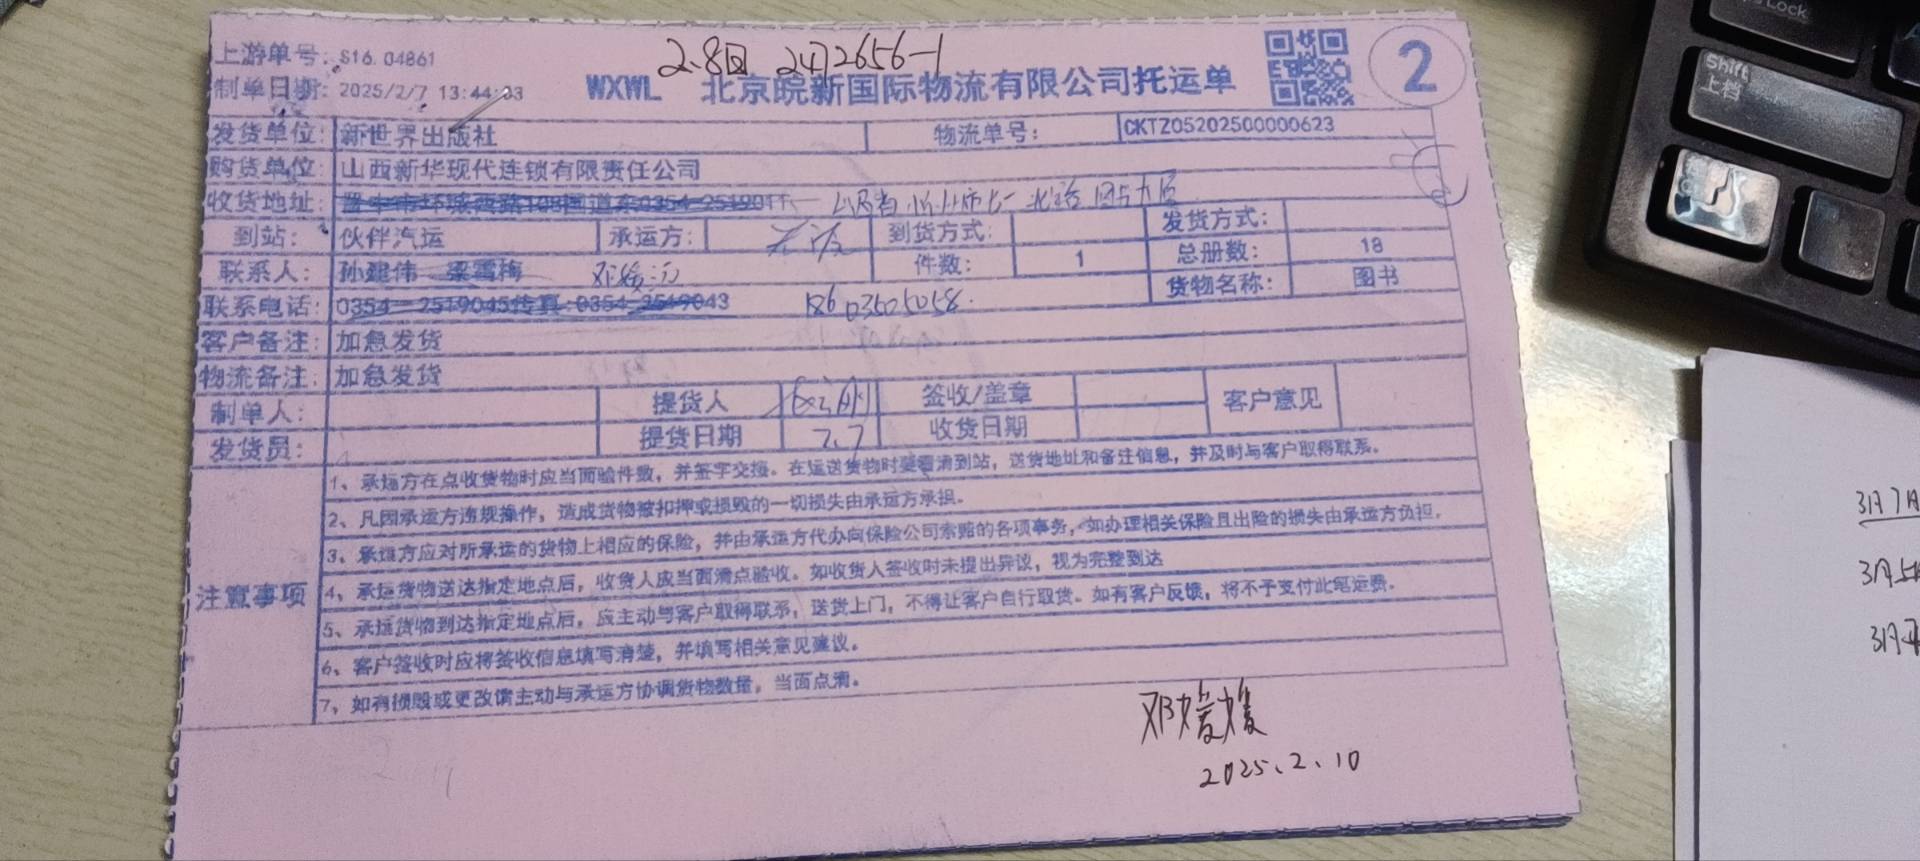 2.8回 2472656-1
上游单号: S16.04861
制单日期: 2025/2/7 13:44:03
WXWL 北京皖新国际物流有限公司托运单
2
发货单位: 新世界出版社 物流单号: CKTZ05202500000623
购货单位: 山西新华现代连锁有限责任公司
收货地址: 晋中市环城西路108国道东0354-2519011
到站: 伙伴汽运 承运方: 到货方式: 发货方式:
联系人: 孙建伟 梁雪梅 件数: 1 总册数: 18
联系电话: 0354-2519045传真:0354-2519043 18603505058. 货物名称: 图书
客户备注: 加急发货
物流备注: 加急发货
制单人: 提货人 签收/盖章 客户意见
发货员: 提货日期 2.7 收货日期
注意事项
1、承运方在点收货物时应当面验件数,并签字交接。在运送货物时要看清到站,送货地址和备注信息,并及时与客户取得联系。
2、凡因承运方违规操作,造成货物被扣押或损毁的一切损失由承运方承担。
3、承运方应对所承运的货物上相应的保险,并由承运方代办向保险公司索赔的各项事务,如办理相关保险且出险的损失由承运方负担。
4、承运货物送达指定地点后,收货人应当面清点验收。如收货人签收时未提出异议,视为完整到达
5、承运货物到达指定地点后,应主动与客户取得联系,送货上门,不得让客户自行取货。如有客户反馈,将不予支付此笔运费。
6、客户签收时应将签收信息填写清楚,并填写相关意见建议。
7、如有损毁或更改请主动与承运方协调货物数量,当面点清。
2025.2.10
Shift
上档
3月7日
3月5
3月